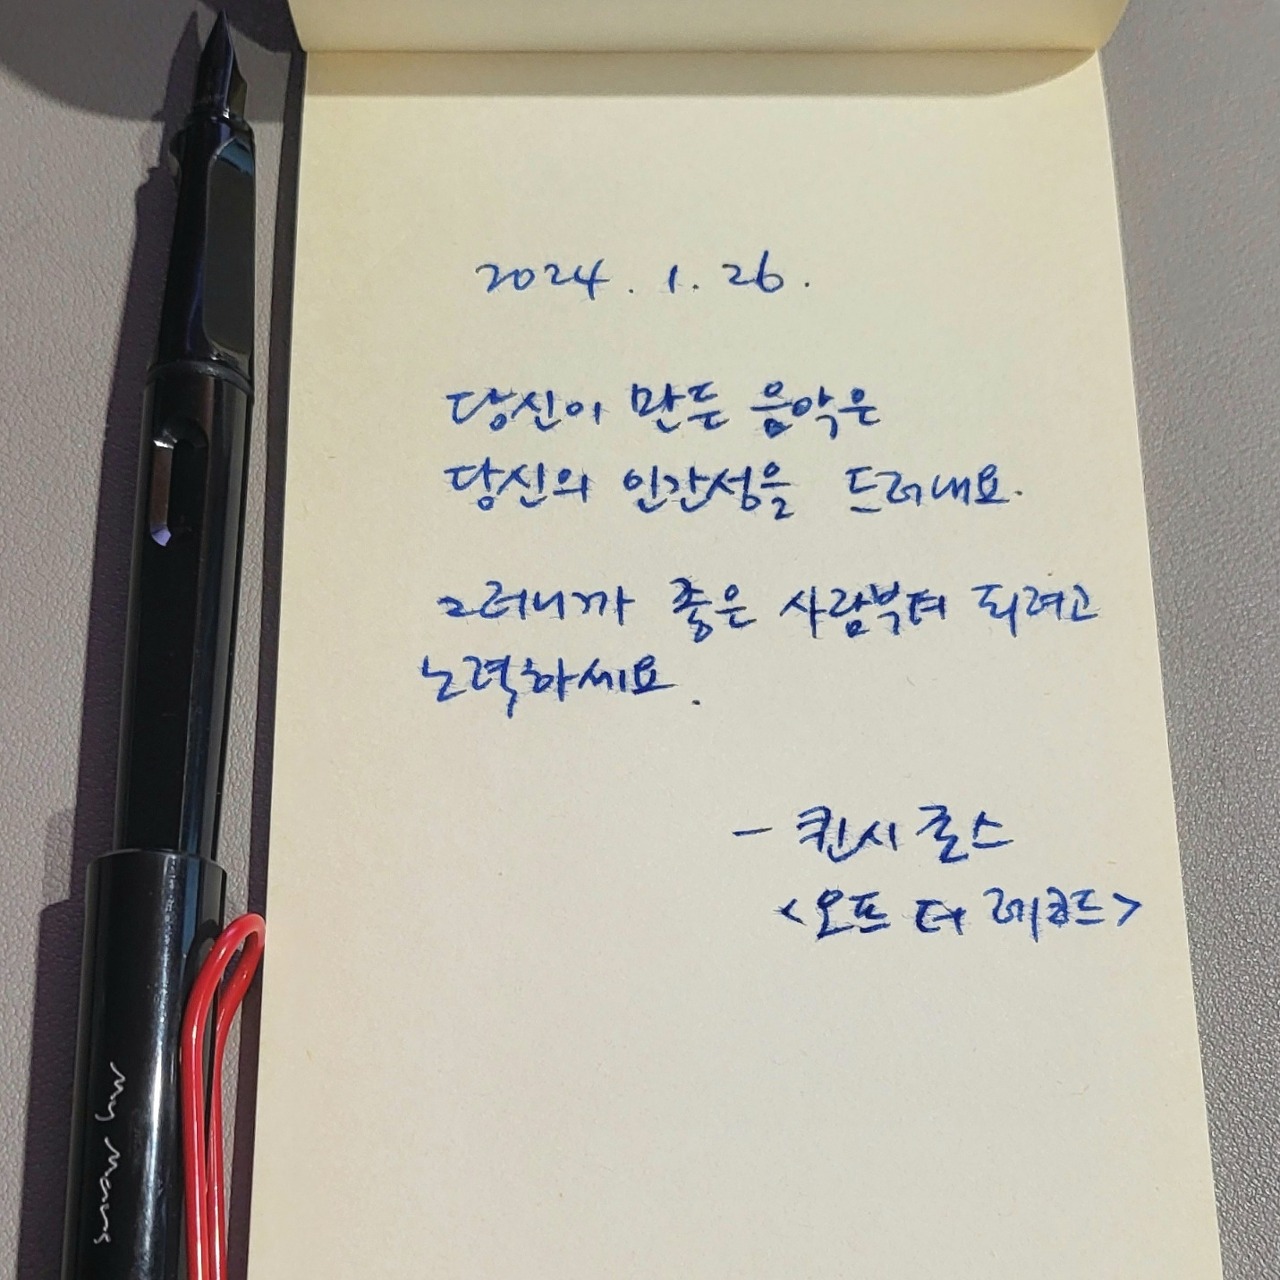 2024. 1. 26.
당신이 만든 음악은
당신의 인간성을 드러내요.
그러니까 좋은 사람부터 되려고
노력하세요.
- 퀸시 존스
<오프 더 레코드>
My